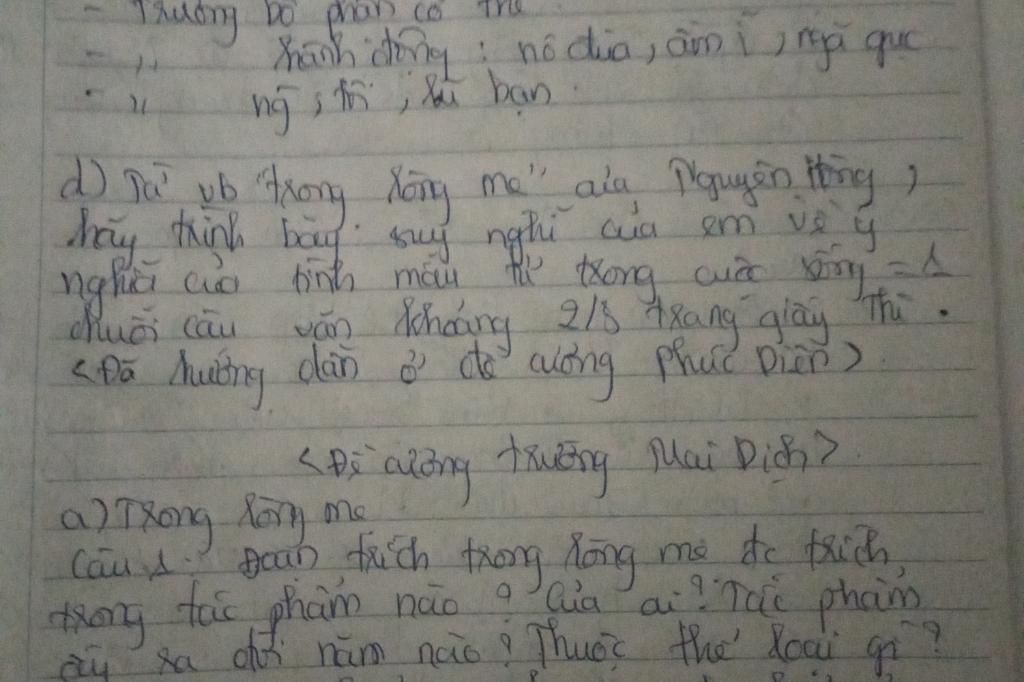 - Trường bộ phận cơ thể
- ,, hành động: nô đùa, ầm ĩ, ngã gục
- ,, ng, tội, xấu bạn.
d) Từ vb "trong lòng mẹ" của Nguyên Hồng,
hãy trình bày suy nghĩ của em về ý
nghĩa của tình mẫu tử trong cuộc sống = 1
chuỗi câu văn khoảng 2/3 trang giấy thi.
<Đã hướng dẫn ở đề cương Phúc Diễn>
<Đề cương trường Mai Dịch>
a) Trong lòng mẹ
Câu 1: Đoạn trích trong lòng mẹ đc trích
trong tác phẩm nào? Của ai? Tác phẩm
ấy ra đời năm nào? Thuộc thể loại gì?